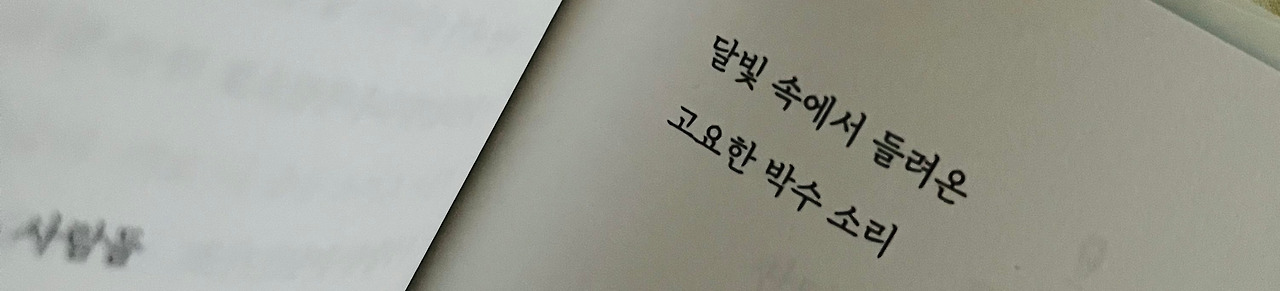 달빛 속에서 들려온
고요한 박수 소리